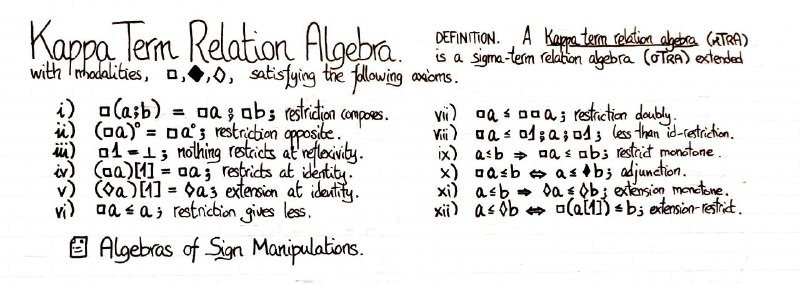 Kappa Term Relation Algebra.
DEFINITION. A Kappa term relation algebra (κTRA)
is a sigma-term relation algebra (σTRA) extended
with modalities, □,◆,◊, satisfying the following axioms.
i) □(a;b) = □a ; □b ; restriction composes.
ii) (□a)° = □a° ; restriction opposite.
iii) □1 = ⊥ ; nothing restricts at reflexivity.
iv) (□a)[1] = □a ; restricts at identity.
v) (◊a)[1] = ◊a ; extension at identity.
vi) □a ≤ a ; restriction gives less.
vii) □a ≤ □□a ; restriction doubly.
viii) □a ≤ □1 ; a ; □1 ; less than id-restriction.
ix) a≤b ⇒ □a ≤ □b ; restrict monotone.
x) □a≤b ⇔ a≤◆b ; adjunction.
xi) a≤b ⇒ ◊a≤◊b ; extension monotone.
xii) a≤◊b ⇔ □(a[1]) ≤ b ; extension-restrict.
Algebras of Sign Manipulations.